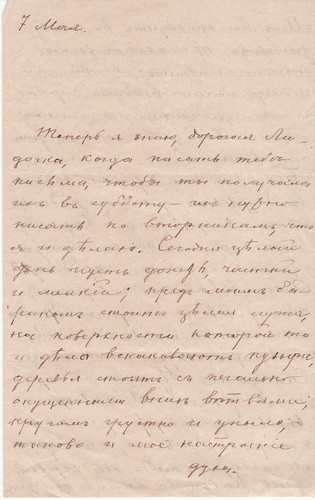 7 Мая.
Теперь я знаю, дорогая Ли-
дочка, когда писать тебе
письма, чтобы ты получала
ихъ въ субботу – ихъ нужно
писать по вторникамъ, что
я и дѣлаю. Сегодня цѣлый
день идетъ дождь, частый
и мелкій; предъ моимъ ба-
ракомъ стоитъ цѣлая лужа,
на поверхности которой то
и дѣло вскакиваютъ пузыри,
деревья стоятъ съ печально
опущенными внизъ вѣтвями;
кругомъ грустно и уныло,
таково и мое настроеніе
духа.